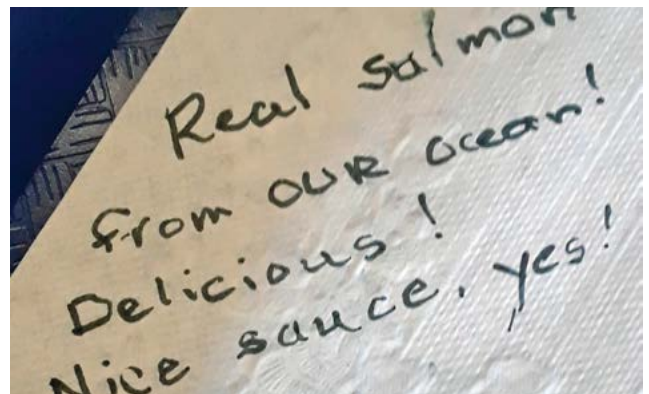 Real salmon
from our ocean!
Delicious!
Nice sauce, yes!